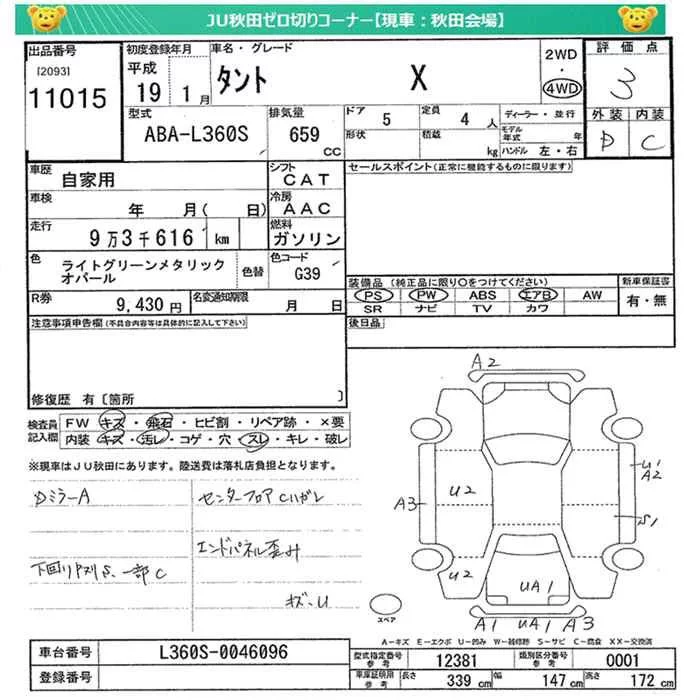 JU秋田ゼロ切りコーナー【現車：秋田会場】
出品番号
[2093]
11015
初度登録年月
平成
19 1月
車名・グレード
タント X
2WD
・
4WD
評価点
3
外装 内装
D C
型式
ABA-L360S
排気量
659
CC
ドア 5
定員 4 人
形状
積載 kg
ディーラー・並行
モデル年式 年
ハンドル 左・右
車歴
自家用
シフト
CAT
車検
年 月( 日)
冷房
AAC
走行
9万3千616 km
燃料
ガソリン
色
ライトグリーンメタリック
オパール
色替
色コード
G39
R券
9,430 円
名変通知期限
月 日
セールスポイント(正常に機能するものに限ります)
装備品(純正品に限り○をつけてください)
新車保証書
PS PW ABS エアB AW
有・無
SR ナビ TV カワ
後日品
注意事項申告欄(不具合内容等は具体的に記入して下さい)
修復歴 有〔箇所 〕
検査員
記入欄
FW キズ・飛石・ヒビ割・リペア跡・×要
内装 キズ・汚レ・コゲ・穴・スレ・キレ・破レ
※現車はJU秋田にあります。陸送費は落札店負担となります。
DミラーA
センターフロアCハガレ
エンドパネル歪み
下回りサビS、一部C
キズ・U
A2
U1
A2
A3
U2
S1
U2
UA1
A1 UA1 A3
スペア
A－キズ E－エクボ U－凹み W－補修跡 S－サビ C－腐食 XX－交換済
車台番号
L360S-0046096
登録番号
型式指定番号
参考
12381
類別区分番号
参考
0001
車庫証明用
参考
長さ 339 cm
幅 147 cm
高さ 172 cm